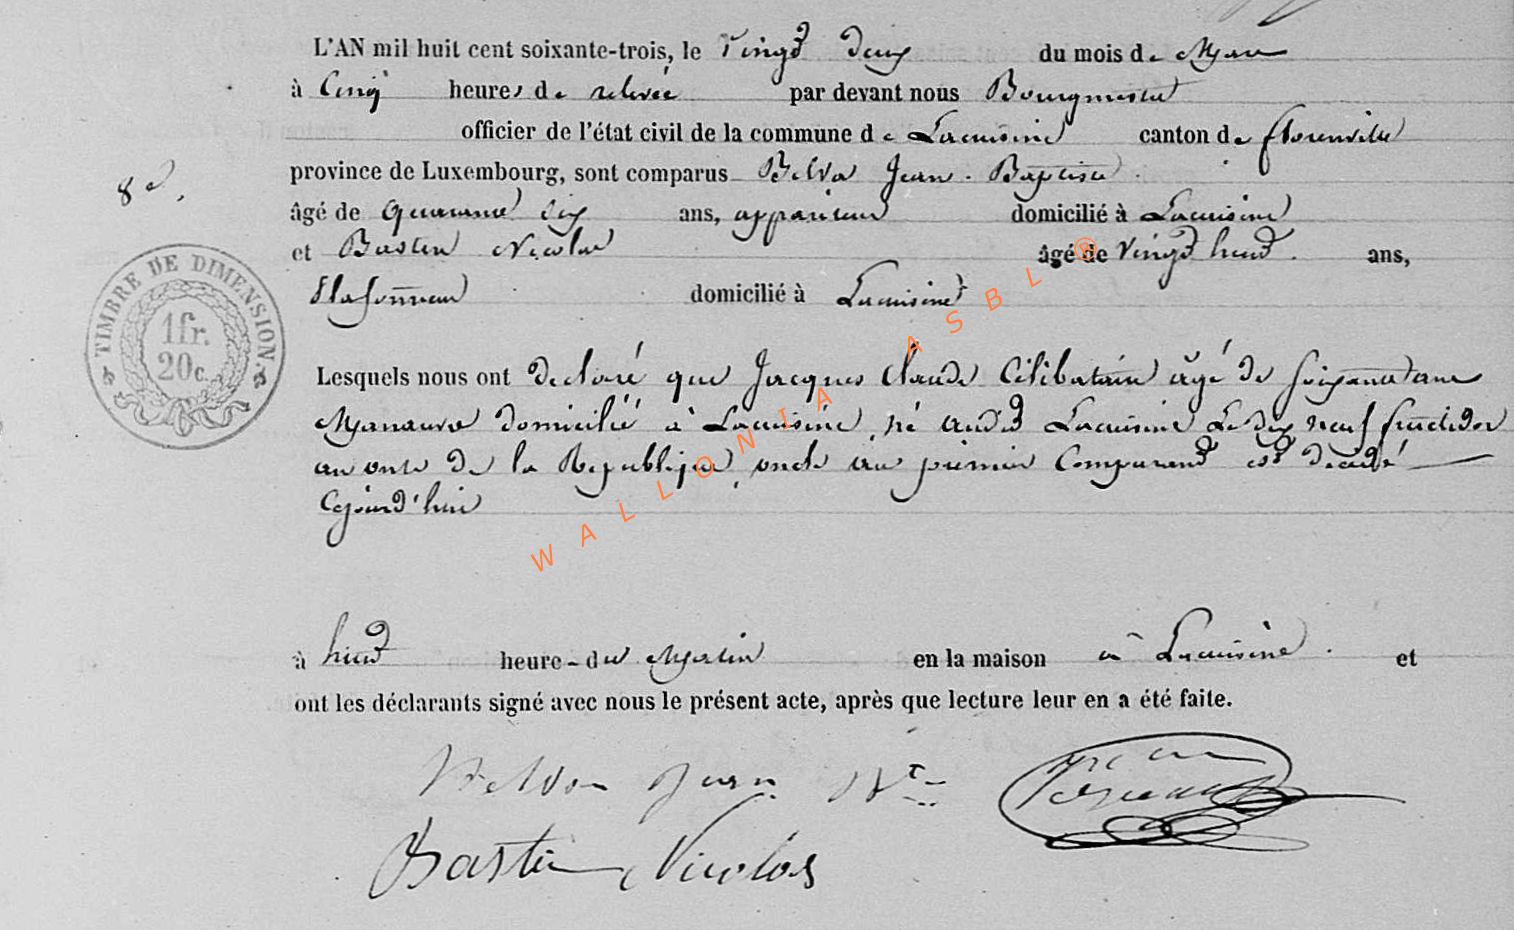 L'AN mil huit cent soixante-trois, le Vingt deux du mois de Mars
à Cinq heures de relevée par devant nous Bourgmestre
officier de l'état civil de la commune de Lacuisine canton de florenville
province de Luxembourg, sont comparus Belva Jean-Baptiste
8e.
âgé de quarante six ans, appariteur domicilié à Lacuisine
et Bastin Nicolas âgé de Vingt huit ans,
Plafonneur domicilié à Lacuisine
TIMBRE DE DIMENSION
1fr.
20c.
Lesquels nous ont declaré que Jacques Claude Célibataire âgé de soixante ans
Manœuvre domicilié à Lacuisine, né audit Lacuisine Le dix neuf fructidor
an onze de la Republique, oncle au premier Comparant est décédé
Cejourd'hui
WALLONIA ASBL ®
à huit heure du Matin en la maison à Lacuisine et
ont les déclarants signé avec nous le présent acte, après que lecture leur en a été faite.
Belva Jean Bte
Bastin Nicolas